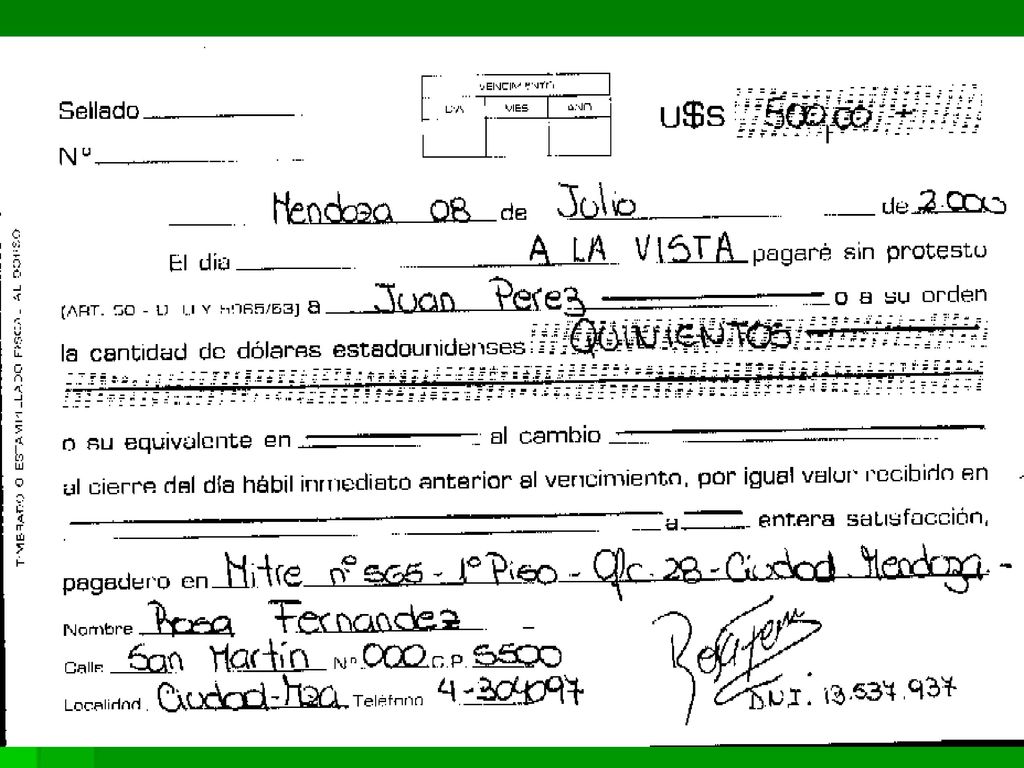 VENCIMIENTO
DIA MES AÑO
Sellado
U$S 500,00
Nº
Mendoza 08 de Julio de 2.000
El día A LA VISTA pagaré sin protesto
(ART. 50 - D. LEY 5965/63) a Juan Perez o a su orden
la cantidad de dólares estadounidenses QUINIENTOS
o su equivalente en al cambio
al cierre del día hábil inmediato anterior al vencimiento, por igual valor recibido en
a entera satisfacción,
pagadero en Mitre nº 565 - 1º Piso - Ofc. 28 - Ciudad Mendoza -
Nombre Rosa Fernandez
Calle San Martín Nº 000 C.P. 5500
Localidad Ciudad-Mza Teléfono 4-304097
Rosa Fern
D.N.I. 13.537.937
TIMBRADO O ESTAMPILLADO FISCAL AL DORSO